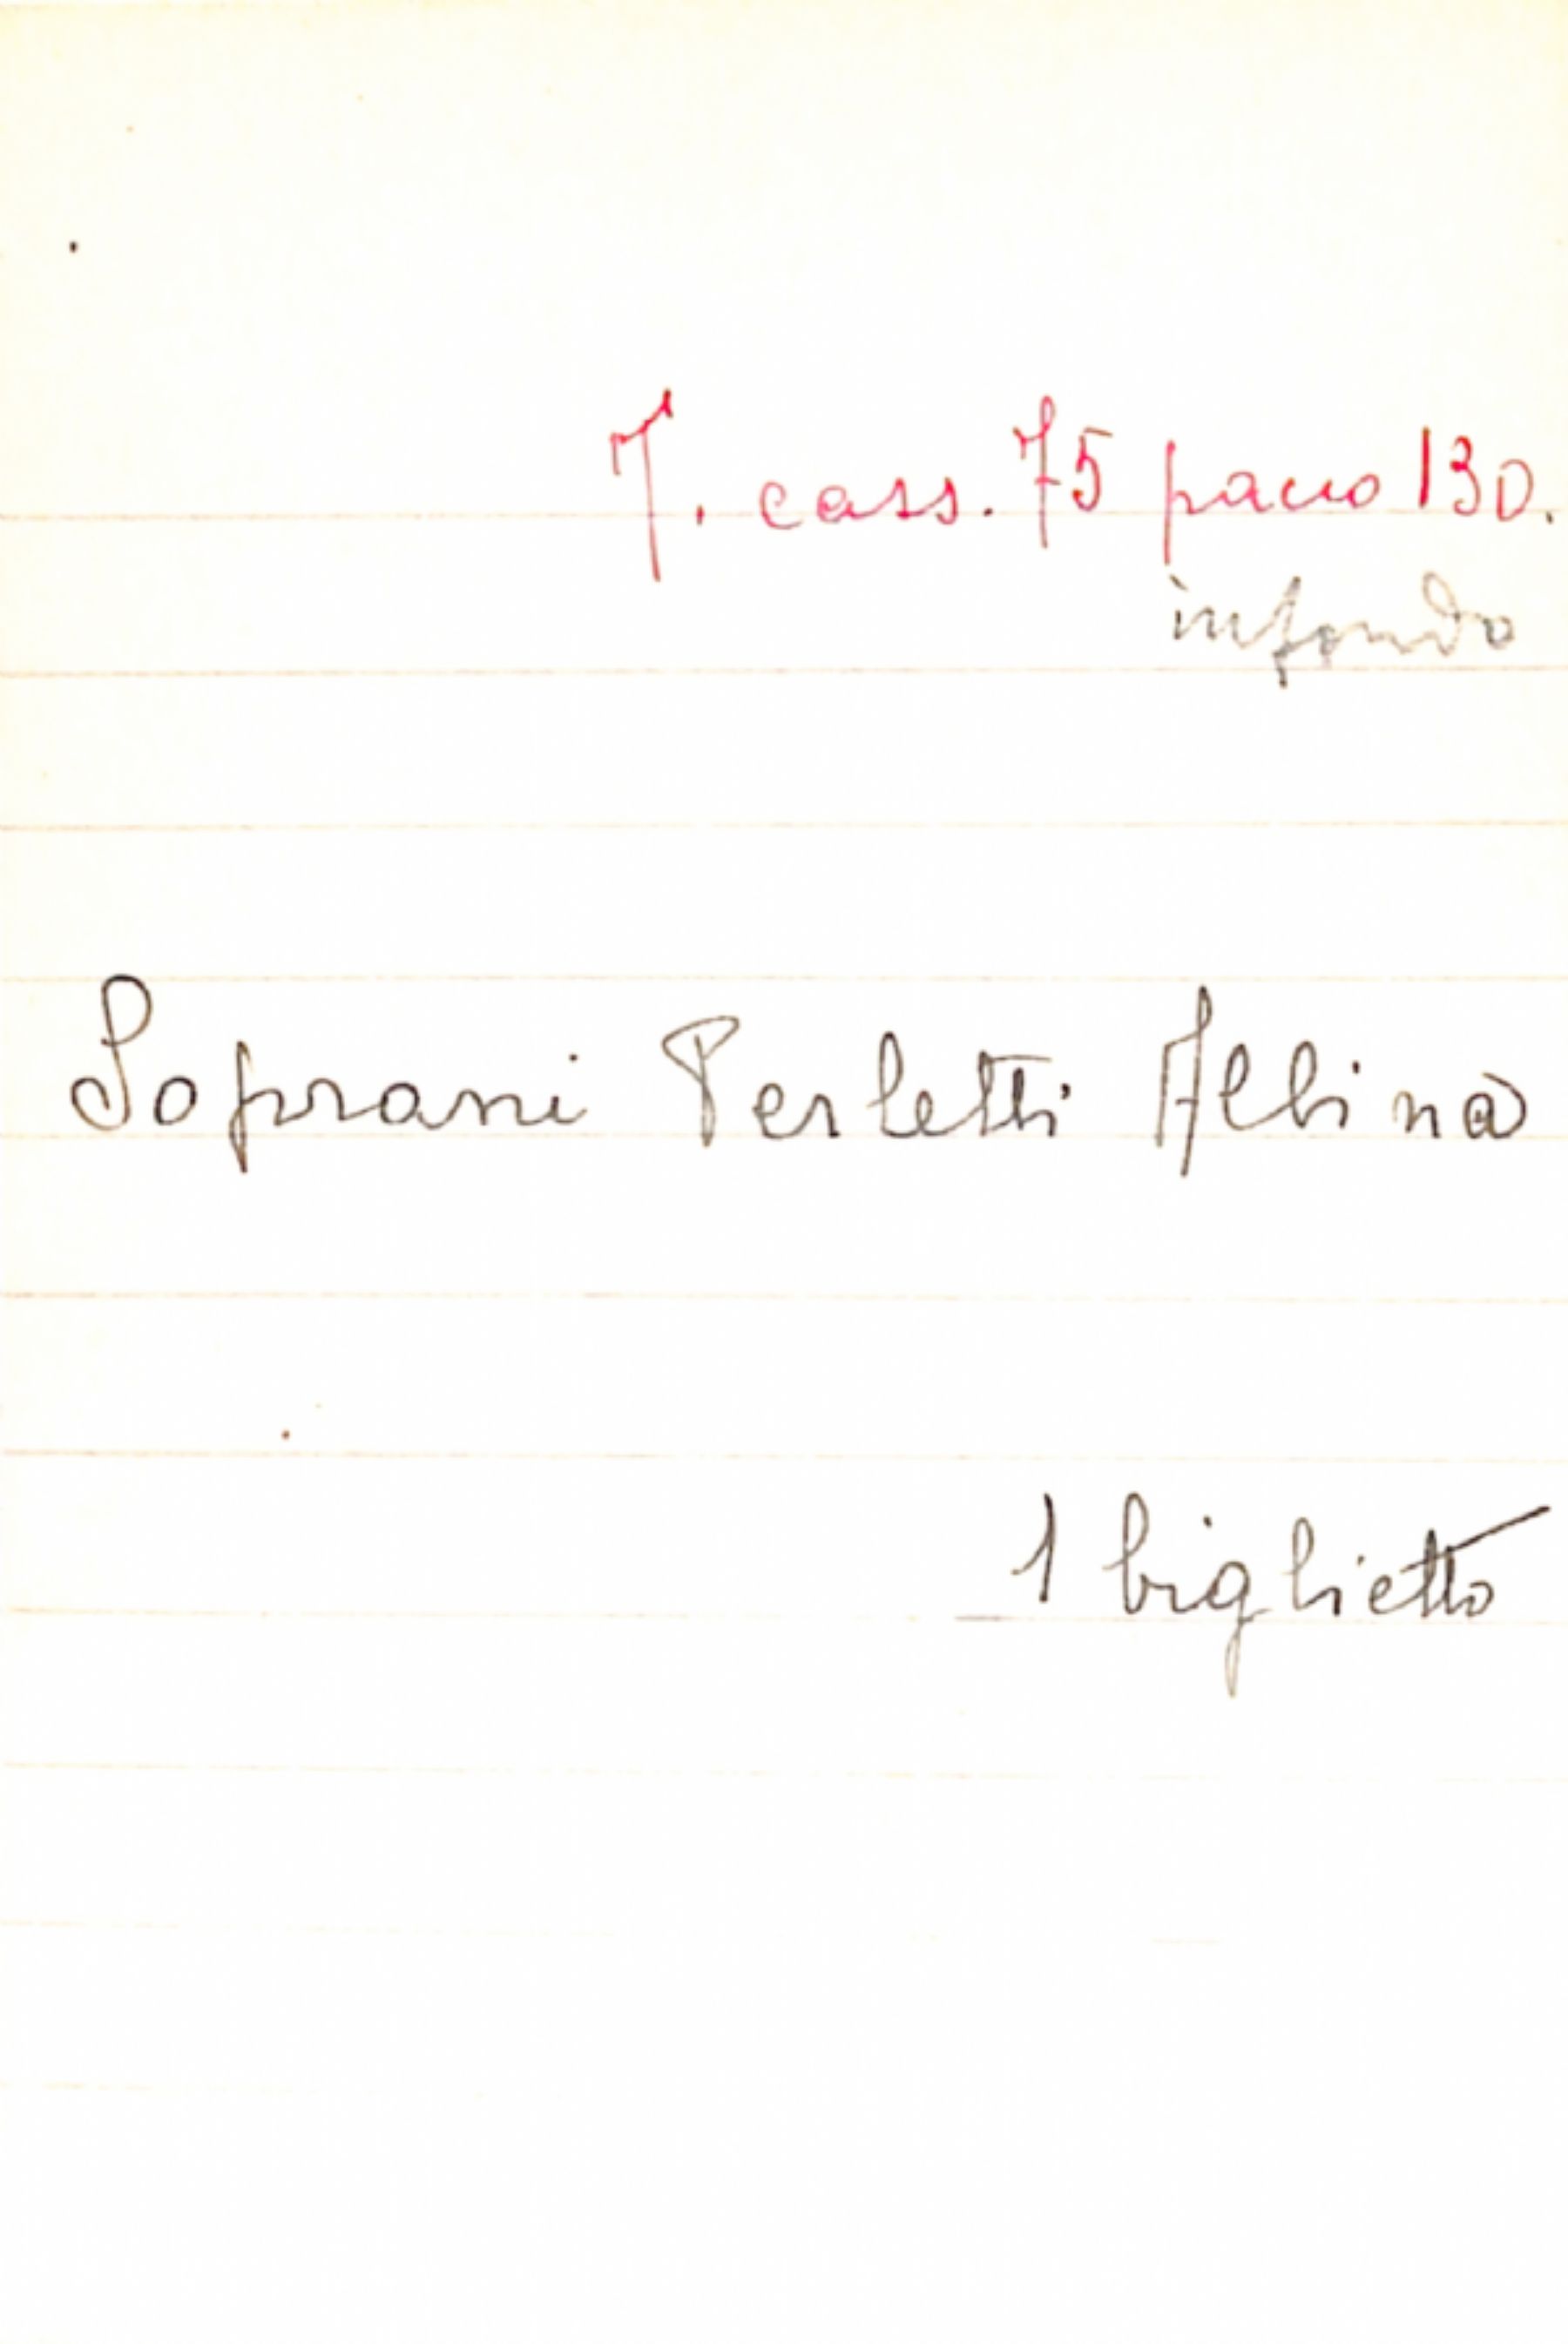 T. cass. 75 pacco 130.
in fondo
Soprani Perletti Albina
1 biglietto